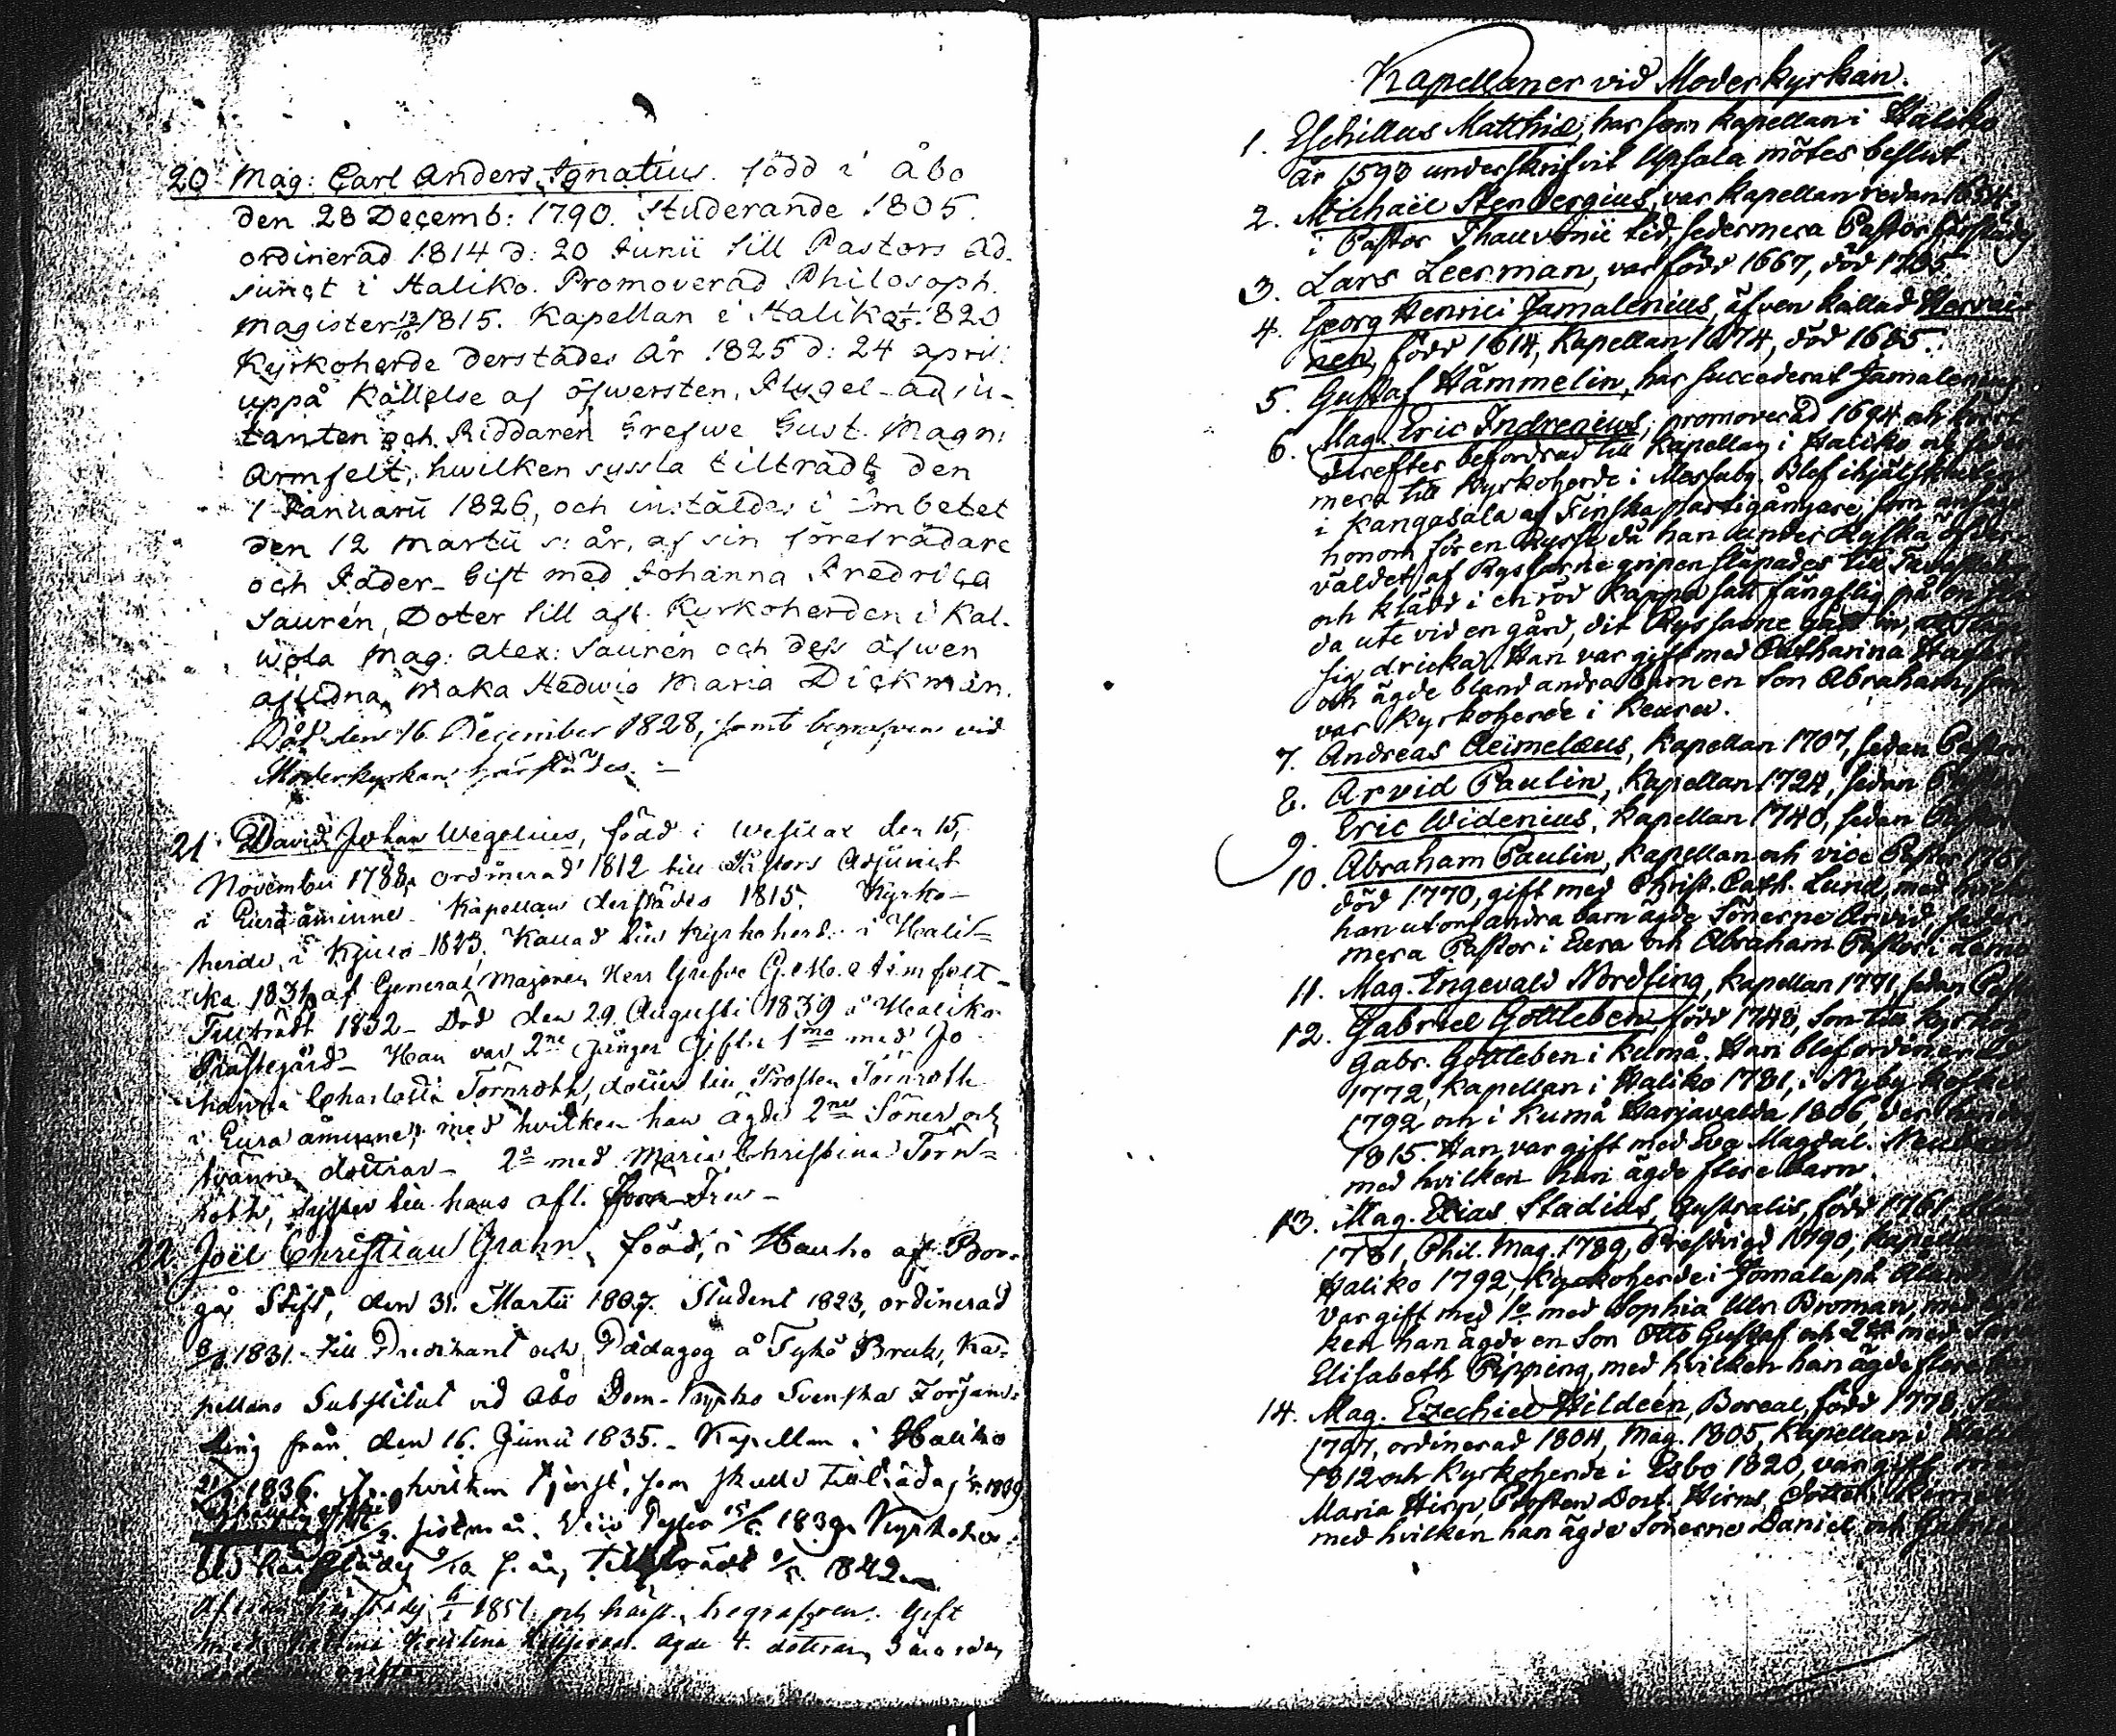 20 Mag: Carl Anders Ignatius. född i Åbo
den 28 Decemb: 1790. Studerande 1805.
ordinerad 1814 d: 20 Junii till Pastors Ad-
junct i Haliko. Promoverad Philosoph.
magister 13/10 1815. Kapellan i Haliko 1/5 1820
Kyrkoherde derstädes År 1825 d: 24 april:
uppå Kallelse af öfwersten, Flygel-adju-
tanten och Riddaren Grefwe Gust. Magn:
Armfelt, hwilken syssla tillträdt den
1 Januarii 1826, och instäldes i Embetet
den 12 Martii s: år, af sin företrädare
och Fader- Gift med Johanna Fredrica
Saurén, Doter till afl. Kyrkoherden i Kal-
wola Mag: Alex: Saurén och dess äfwen
aflidna Maka Hedwig Maria Dickman.
Död den 16 December 1828, samt begrafven vid
Moderkyrkan härstädes.
21 David Johan Wegelius, född i Wesilax den 15,
November 1788, ordinerad 1812 till Pastors Adjunct
i Euraåminne. Kapellan derstädes 1815. Kyrko-
herde i Kjulo 1823. Kallad till Kyrkoherde i Hali=
ko 1831 af General Majoren Herr Grefve G. M. Armfelt-
Tillträdt 1832 - Död den 29 Augusti 1839 å Haliko
Prästegård- Han var 2ne gånger Gift 1mo med Jo
hanna Charlotta Törnroth, dotter till Prosten Törnroth
i Euraåminne, med hvilken han ägde 2ne Söner och
tvänne döttrar - 2o med Maria Christina Törn=
roth, syster till hans afl. Fru -
22 Joël Christian Grahn, född, i Hauho af Bor-
gå Stift, den 31 Martii 1807. Student 1823, ordinerad
1831 till Predikant och Pädagog å Tykö Bruk, Ka-
pellans Substitut vid Åbo Dom-Kyrko Svenska Försam-
ling från den 16. Junii 1835. - Kapellan i Haliko
1836. hvilken tjenst, som skulle tillträdas 1/5 1839
Vice Pastor 15/5 1839. Kyrkoher-
de härstädes s. år, Tillträdt 1/5 1842
Afled härstädes 1851 och härst. begrafven. Gift
med Kristina ägde 4. döttrar, 3
Kapellaner vid Moderkyrkan.
1. Eschillus Matthiæ, har som kapellan i Haliko
år 1593 underskrifvit Upsala mötes beslut.
2. Michaël Stenbergius, var kapellan redan
i Pastor Thauvonii tid, sedermera Pastor härstädes
3. Lars Leerman, var född 1667, död
4. Georg Henrici Jamalenius, äfven kallad Hervai-
nen, född 1614, Kapellan 1674, död 1685.
5. Gustaf Hämmelin, har succederat Jamalenius.
6. Mag. Eric Indrenius, promoverad 1694 och
derefter befordrad till Kapellan i Haliko och seder-
mera till Kyrkoherde i Messuby. Blef ihjälskuten
i Kangasala af Finska partigångare, som ansågo
honom för en Rysse då han under Ryska öfver-
väldet, af Ryssarne gripen släpades till Tavastehus
och klädd i en röd kappa satt fängslig på en
da ute vid en gård, dit Ryssarne gått in,
sig dricka. Han var gift med Catharina
och ägde bland andra barn en son Abraham, som
var Kyrkoherde i Keuru.
7. Andreas Aeimelæus, Kapellan 1707, sedan Pastor
8. Arvid Paulin, Kapellan 1724, sedan Pastor
9. Eric Widenius, Kapellan 1740, sedan Pastor
10. Abraham Paulin, Kapellan och vice Pastor
död 1770, gift med Christ. Cath. Lund, med hvilken
han utom andra barn ägde Sönerne Arvid, seder-
mera Pastor i Eura och Abraham Pastor i
11. Mag. Ingevald Nordling, kapellan 1771, sedan
12. Gabriel Gottleben, född 1748, son till Kyrkoh
Gabr. Gottleben i Kumå. Han blef ordinerad
1772, Kapellan i Haliko 1781, i Nyby
1792 och i Kumå Harjavalda 1806, der han
1815. Han var gift med Eva Magdal.
med hvilken han ägde flere barn.
13. Mag. Elias Stadius, Australis, född 1761,
1781, Phil. Mag. 1789, Prestvigd 1790, Kapellan
Haliko 1792, Kyrkoherde i Jomala på Åland
Var gift med 1o med Sophia Ulr. Broman, med hvil-
ken han ägde en Son Otto Gustaf och 2o med
Elisabeth Pipping, med hvilken han ägde flere
14. Mag. Ezechiel Hildeen, Boreal, född 1778,
1797, ordinerad 1804, Mag. 1805, Kapellan i
1812 och Kyrkoherde i Esbo 1820, var gift
Maria Hirn, Prosten Doct. Hirns Dotter
med hvilken han ägde Sönerne Daniel och Gabriel